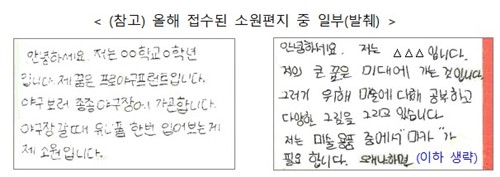 < (참고) 올해 접수된 소원편지 중 일부(발췌) >
안녕하세요. 저는 OO학교 O학년
입니다. 제 꿈은 프로야구프런트입니다.
야구 보러 종종 야구장에 가곤합니다.
야구장 갈 때 유니폼 한번 입어보는게
제 소원입니다.
안녕하세요. 저는 △△△입니다.
저의 큰 꿈은 미대에 가는 것입니다.
그러기 위해 미술에 대해 공부하고
다양한 그림을 그리고 있습니다.
저는 미술 용품 중에서 "마카"가
필요 합니다. 왜냐하면 (이하 생략)